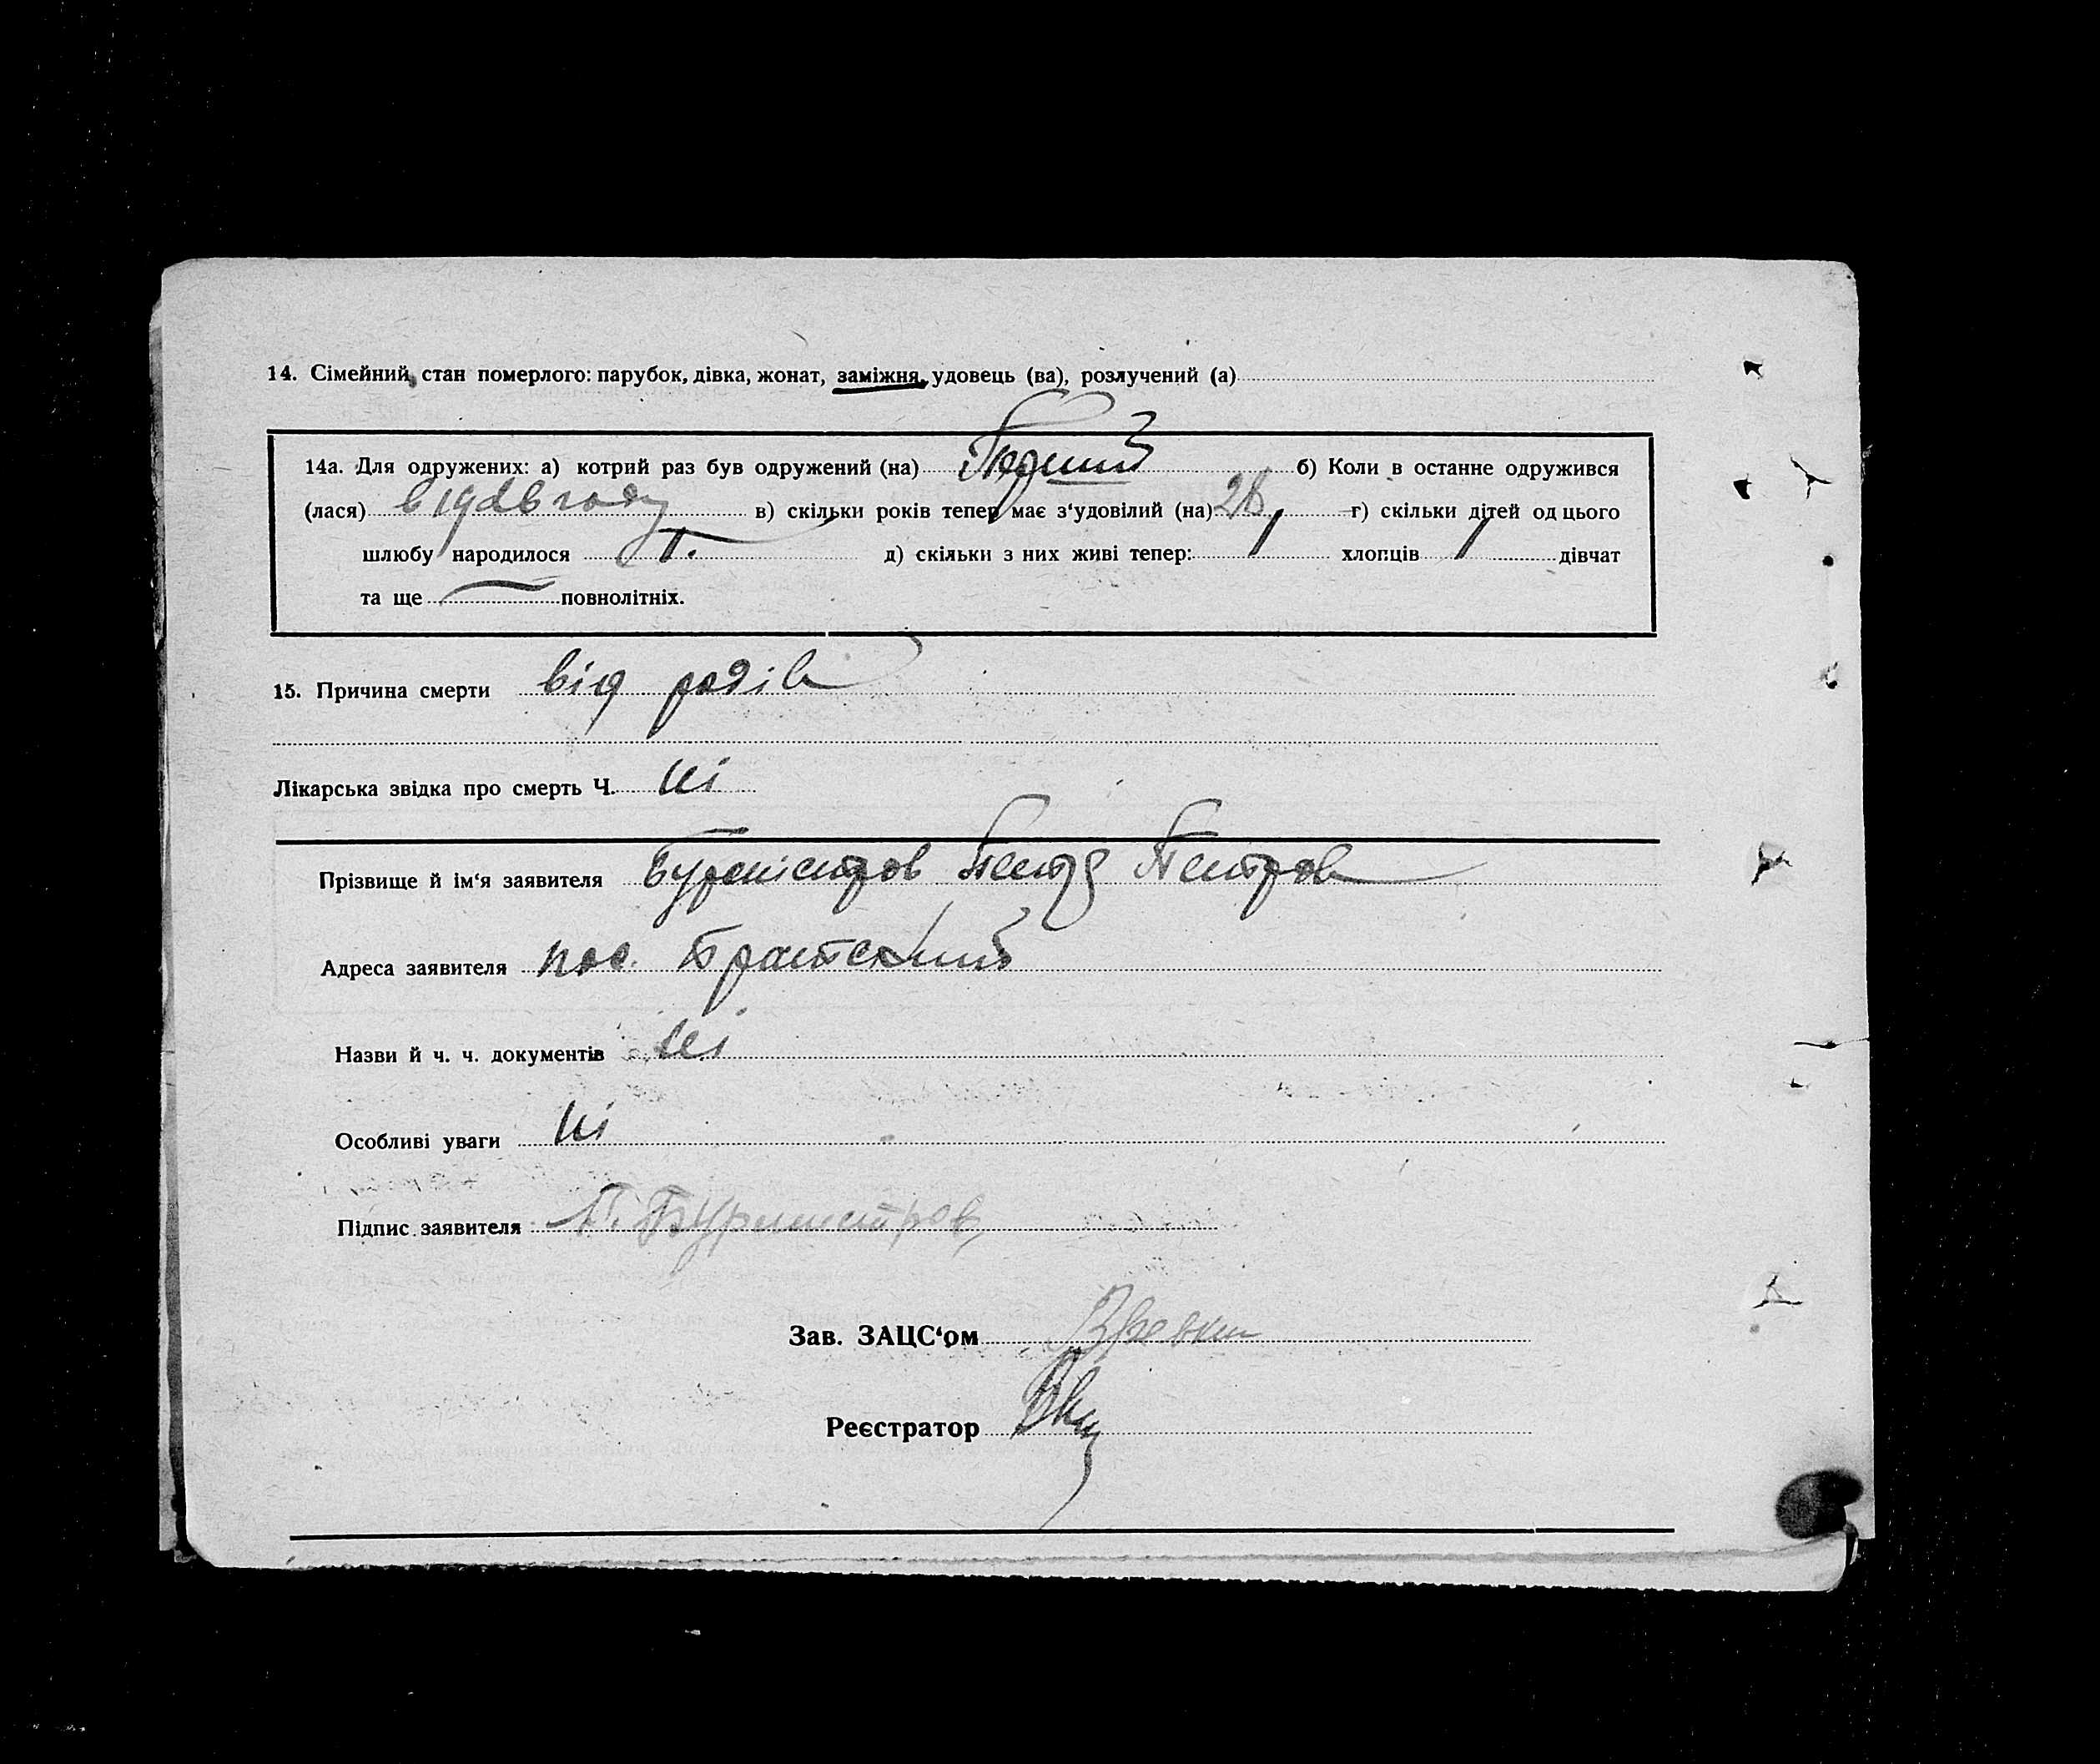 14. Сімейний стан померлого: парубок, дівка, жонат, заміжня, удовець (ва), розлучений (а)
14а. Для одружених: а) котрий раз був одружений (на) Перший б) Коли в останне одружився
(лася) в 1926 году в) скільки років тепер має з'удовілий (на) 28 г) скільки дітей од цього
шлюбу народилося 1. д) скільки з них живі тепер: 1 хлопців 1 дівчат
та ще — повнолітніх.
15. Причина смерти від родів
Лікарська звідка про смерть Ч. ні
Прізвище й ім'я заявителя Бурмістров Петр Петров
Адреса заявителя пос. Братский
Назви й ч. ч. документів ні
Особливі уваги ні
Підпис заявителя П. Бурмистров
Зав. ЗАЦС'ом
Реєстратор